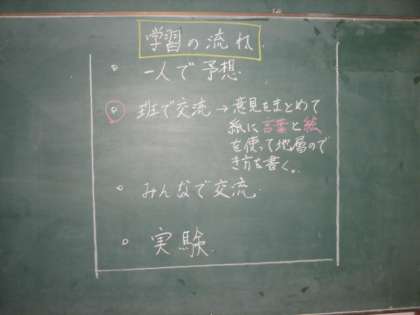 学習の流れ
一人で予想
班で交流→意見をまとめて
紙に言葉と絵
を使って地層ので
き方を書く。
みんなで交流
実験